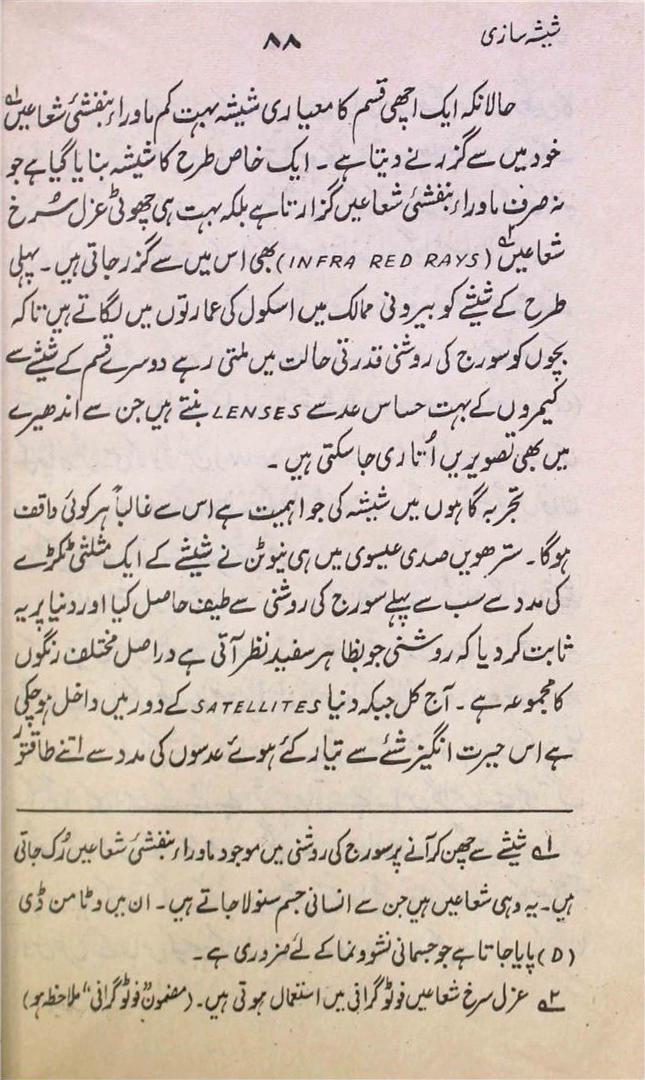 شیشہ سازی
۸۸
حالانکہ ایک اچھی قسم کا معیاری شیشہ بہت کم ماوراء بنفشئی شعاعیں ؎۱
خود میں سے گزرنے دیتا ہے ۔ ایک خاص طرح کا شیشہ بنایا گیا ہے جو
نہ صرف ماوراء بنفشئی شعاعیں گزارتا ہے بلکہ بہت ہی چھوٹی عزل سُرخ
شعاعیں ؎۲ (INFRA RED RAYS) بھی اس میں سے گزر جاتی ہیں ۔ پہلی
طرح کے شیشے کو بیرونی ممالک میں اسکول کی عمارتوں میں لگاتے ہیں تاکہ
بچوں کو سورج کی روشنی قدرتی حالت میں ملتی رہے دوسرے قسم کے شیشے سے
کیمروں کے بہت حساس عدسے LENSES بنتے ہیں جن سے اندھیرے
میں بھی تصویریں اُتاری جا سکتی ہیں ۔
تجربہ گاہوں میں شیشہ کی جو اہمیت ہے اس سے غالباً ہر کوئی واقف
ہوگا ۔ سترھویں صدی عیسوی میں ہی نیوٹن نے شیشے کے ایک مثلثی ٹکڑے
کی مدد سے سب سے پہلے سورج کی روشنی سے طیف حاصل کیا اور دنیا پر یہ
ثابت کر دیا کہ روشنی جو بظاہر سفید نظر آتی ہے دراصل مختلف رنگوں
کا مجموعہ ہے ۔ آج کل جبکہ دنیا SATELLITES کے دور میں داخل ہو چکی
ہے اس حیرت انگیز شئے سے تیار کئے ہوئے عدسوں کی مدد سے اتنے طاقتور
؎۱ شیشے سے چھن کر آنے پر سورج کی روشنی میں موجود ماوراء بنفشئی شعاعیں رُک جاتی
ہیں ۔ یہ وہی شعاعیں ہیں جن سے انسانی جسم سنولا جاتے ہیں ۔ ان میں وٹامن ڈی
(D) پایا جاتا ہے جو جسمانی نشوونما کے لئے ضروری ہے ۔
؎۲ عزل سرخ شعاعیں فوٹو گرافی میں استعمال ہوتی ہیں ۔ (مضمون "فوٹو گرافی" ملاحظہ ہو)